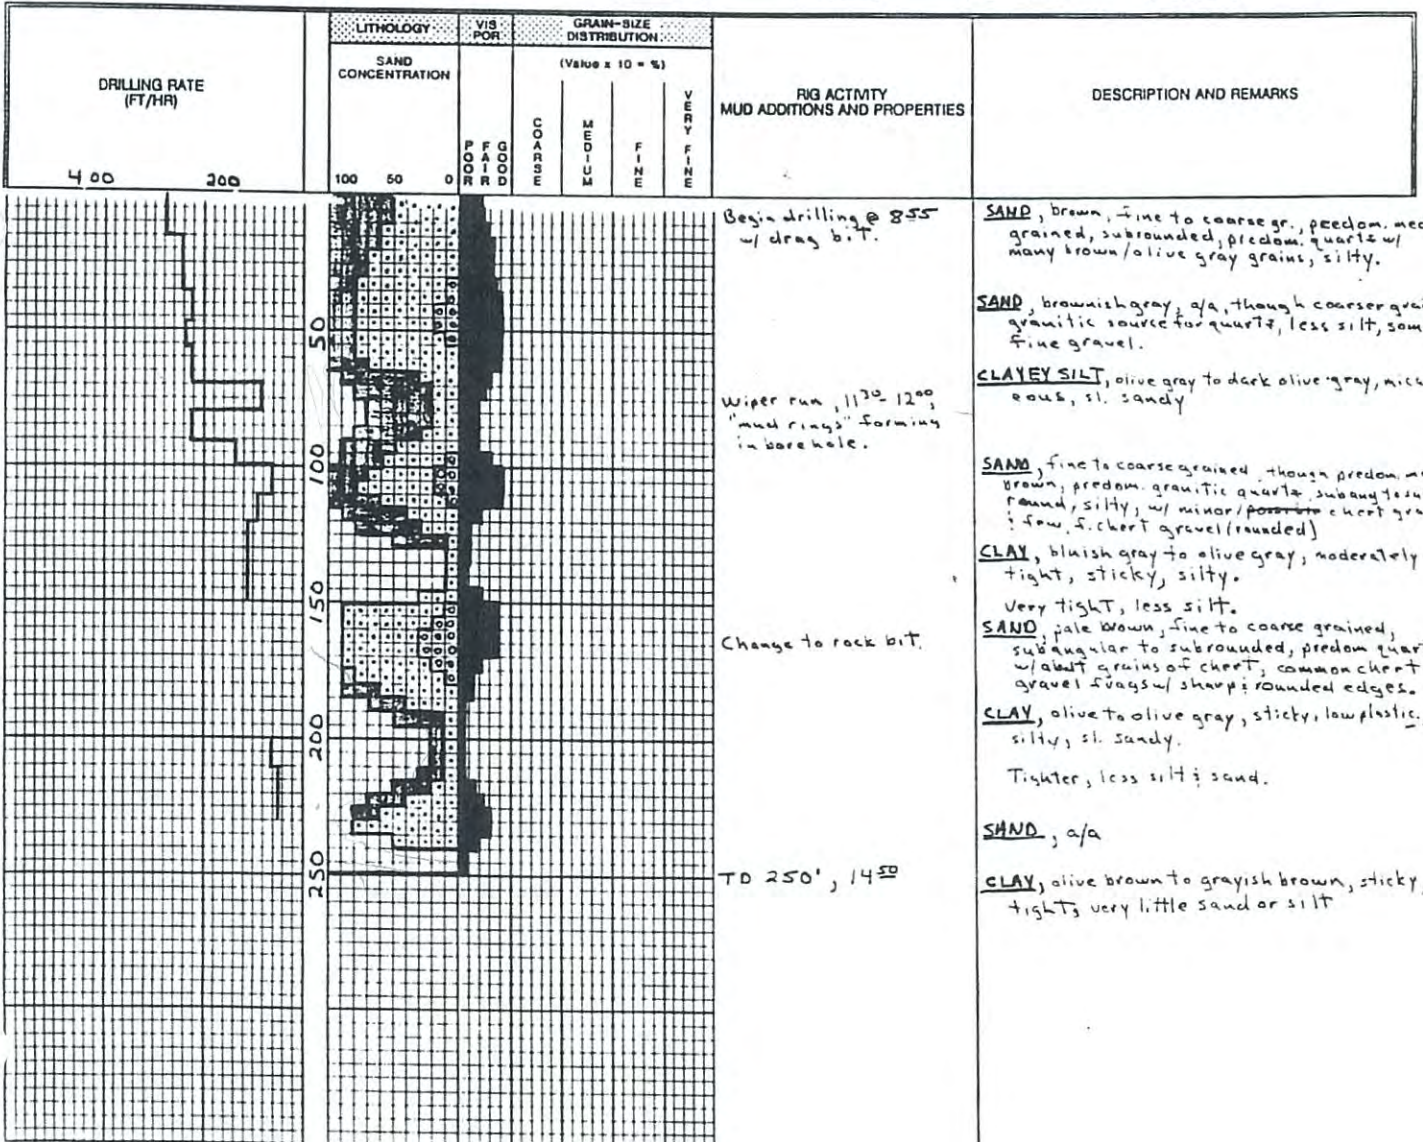 DRILLING RATE
(FT/HR)
400 200
LITHOLOGY
SAND
CONCENTRATION
100 50 0
VIS
POR
POOR
FAIR
GOOD
GRAIN-SIZE
DISTRIBUTION
(Value x 10 = %)
COARSE
MEDIUM
FINE
VERY FINE
RIG ACTIVITY
MUD ADDITIONS AND PROPERTIES
DESCRIPTION AND REMARKS
50
100
150
200
250
Begin drilling @ 855
w/ drag bit.
Wiper run, 1130-1200,
"mud rings" forming
in borehole.
Change to rock bit.
TD 250', 1450
SAND, brown, fine to coarse gr., predom. med
grained, subrounded, predom. quartz w/
many brown/olive gray grains, silty.
SAND, brownish gray, a/a, though coarser grai
granitic source for quartz, less silt, som
fine gravel.
CLAYEY SILT, olive gray to dark olive gray, mica
eous, sl. sandy
SAND, fine to coarse grained, though predom. me
brown, predom. granitic quartz, subang to su
round, silty, w/ minor/possible chert gra
& few f. chert gravel (rounded)
CLAY, bluish gray to olive gray, moderately
tight, sticky, silty.
Very tight, less silt.
SAND, pale brown, fine to coarse grained,
subangular to subrounded, predom quar
w/abdt grains of chert, common chert
gravel frags w/ sharp & rounded edges.
CLAY, olive to olive gray, sticky, low plastic.
silty, sl. sandy.
Tighter, less silt & sand.
SAND, a/a
CLAY, olive brown to grayish brown, sticky,
tight, very little sand or silt